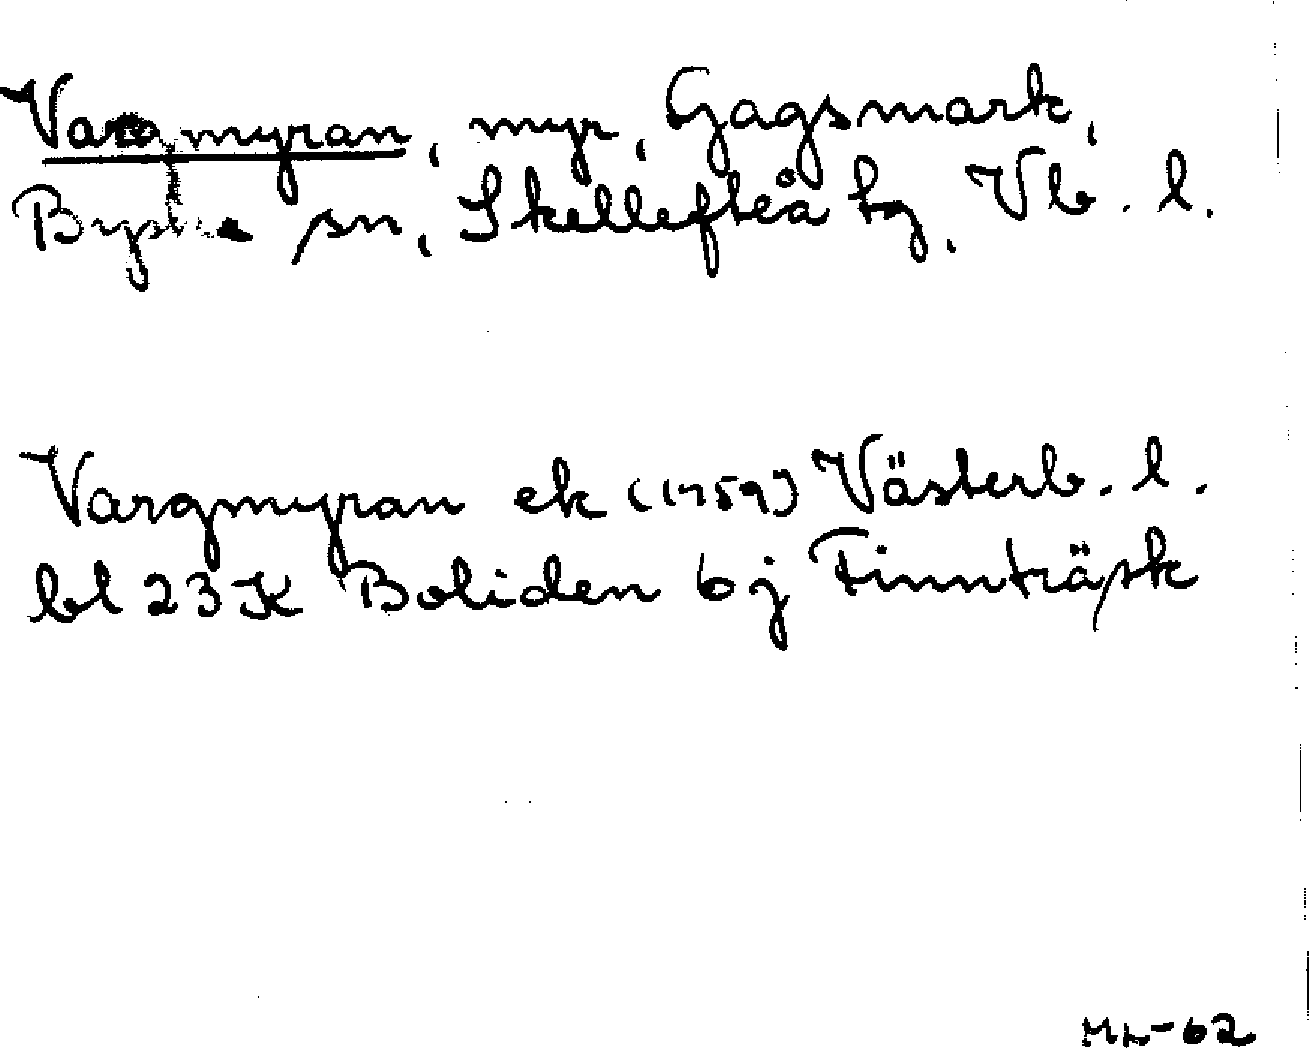 Vargmyran, myr, Gagsmark,
Byske sn, Skellefteå tg, Vb. l.
Vargmyran ek (1959) Västerb. l.
bl 23K Boliden 6j Finnträsk